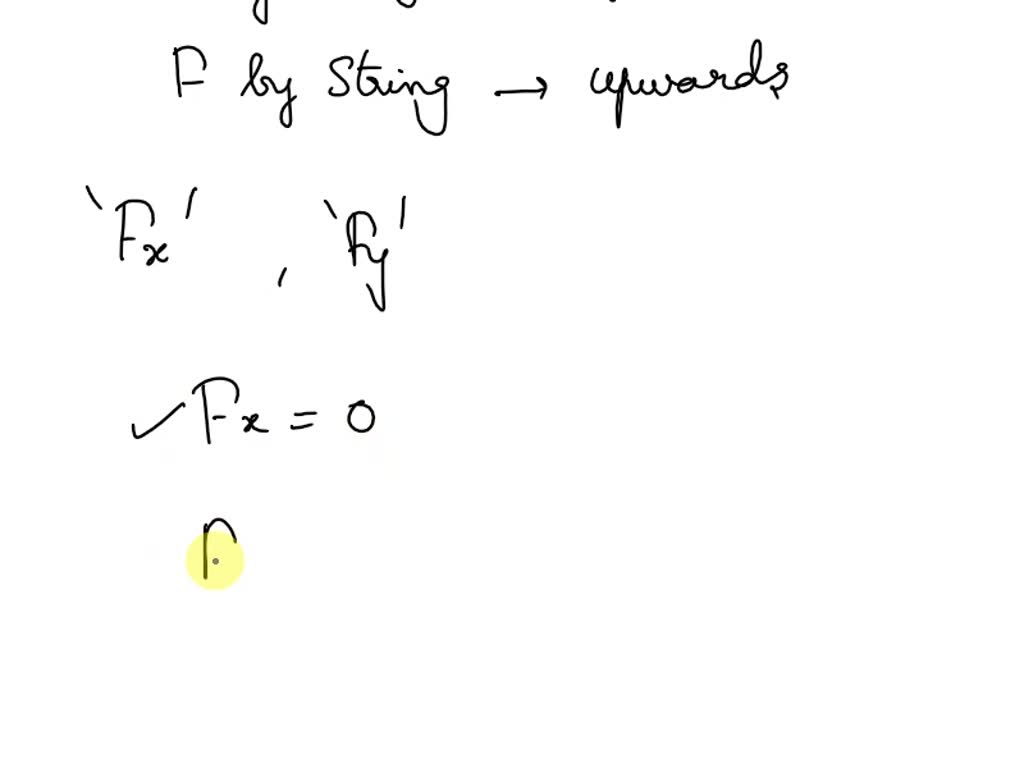 F by String → upwards
'Fx' , 'Fy'
✓ Fx = 0